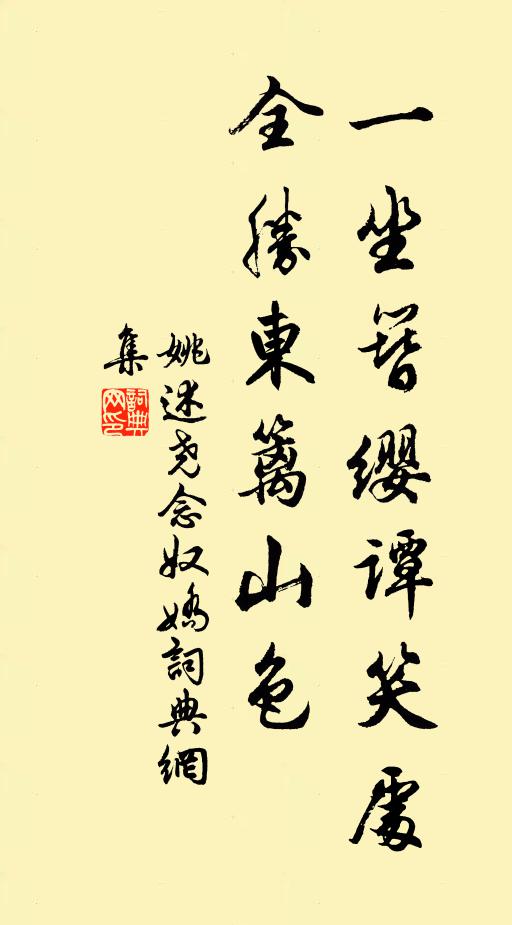 一坐簪纓谭笑處
全勝東籬山色
姚述尧念奴嬌詞典網
集
詞典網印